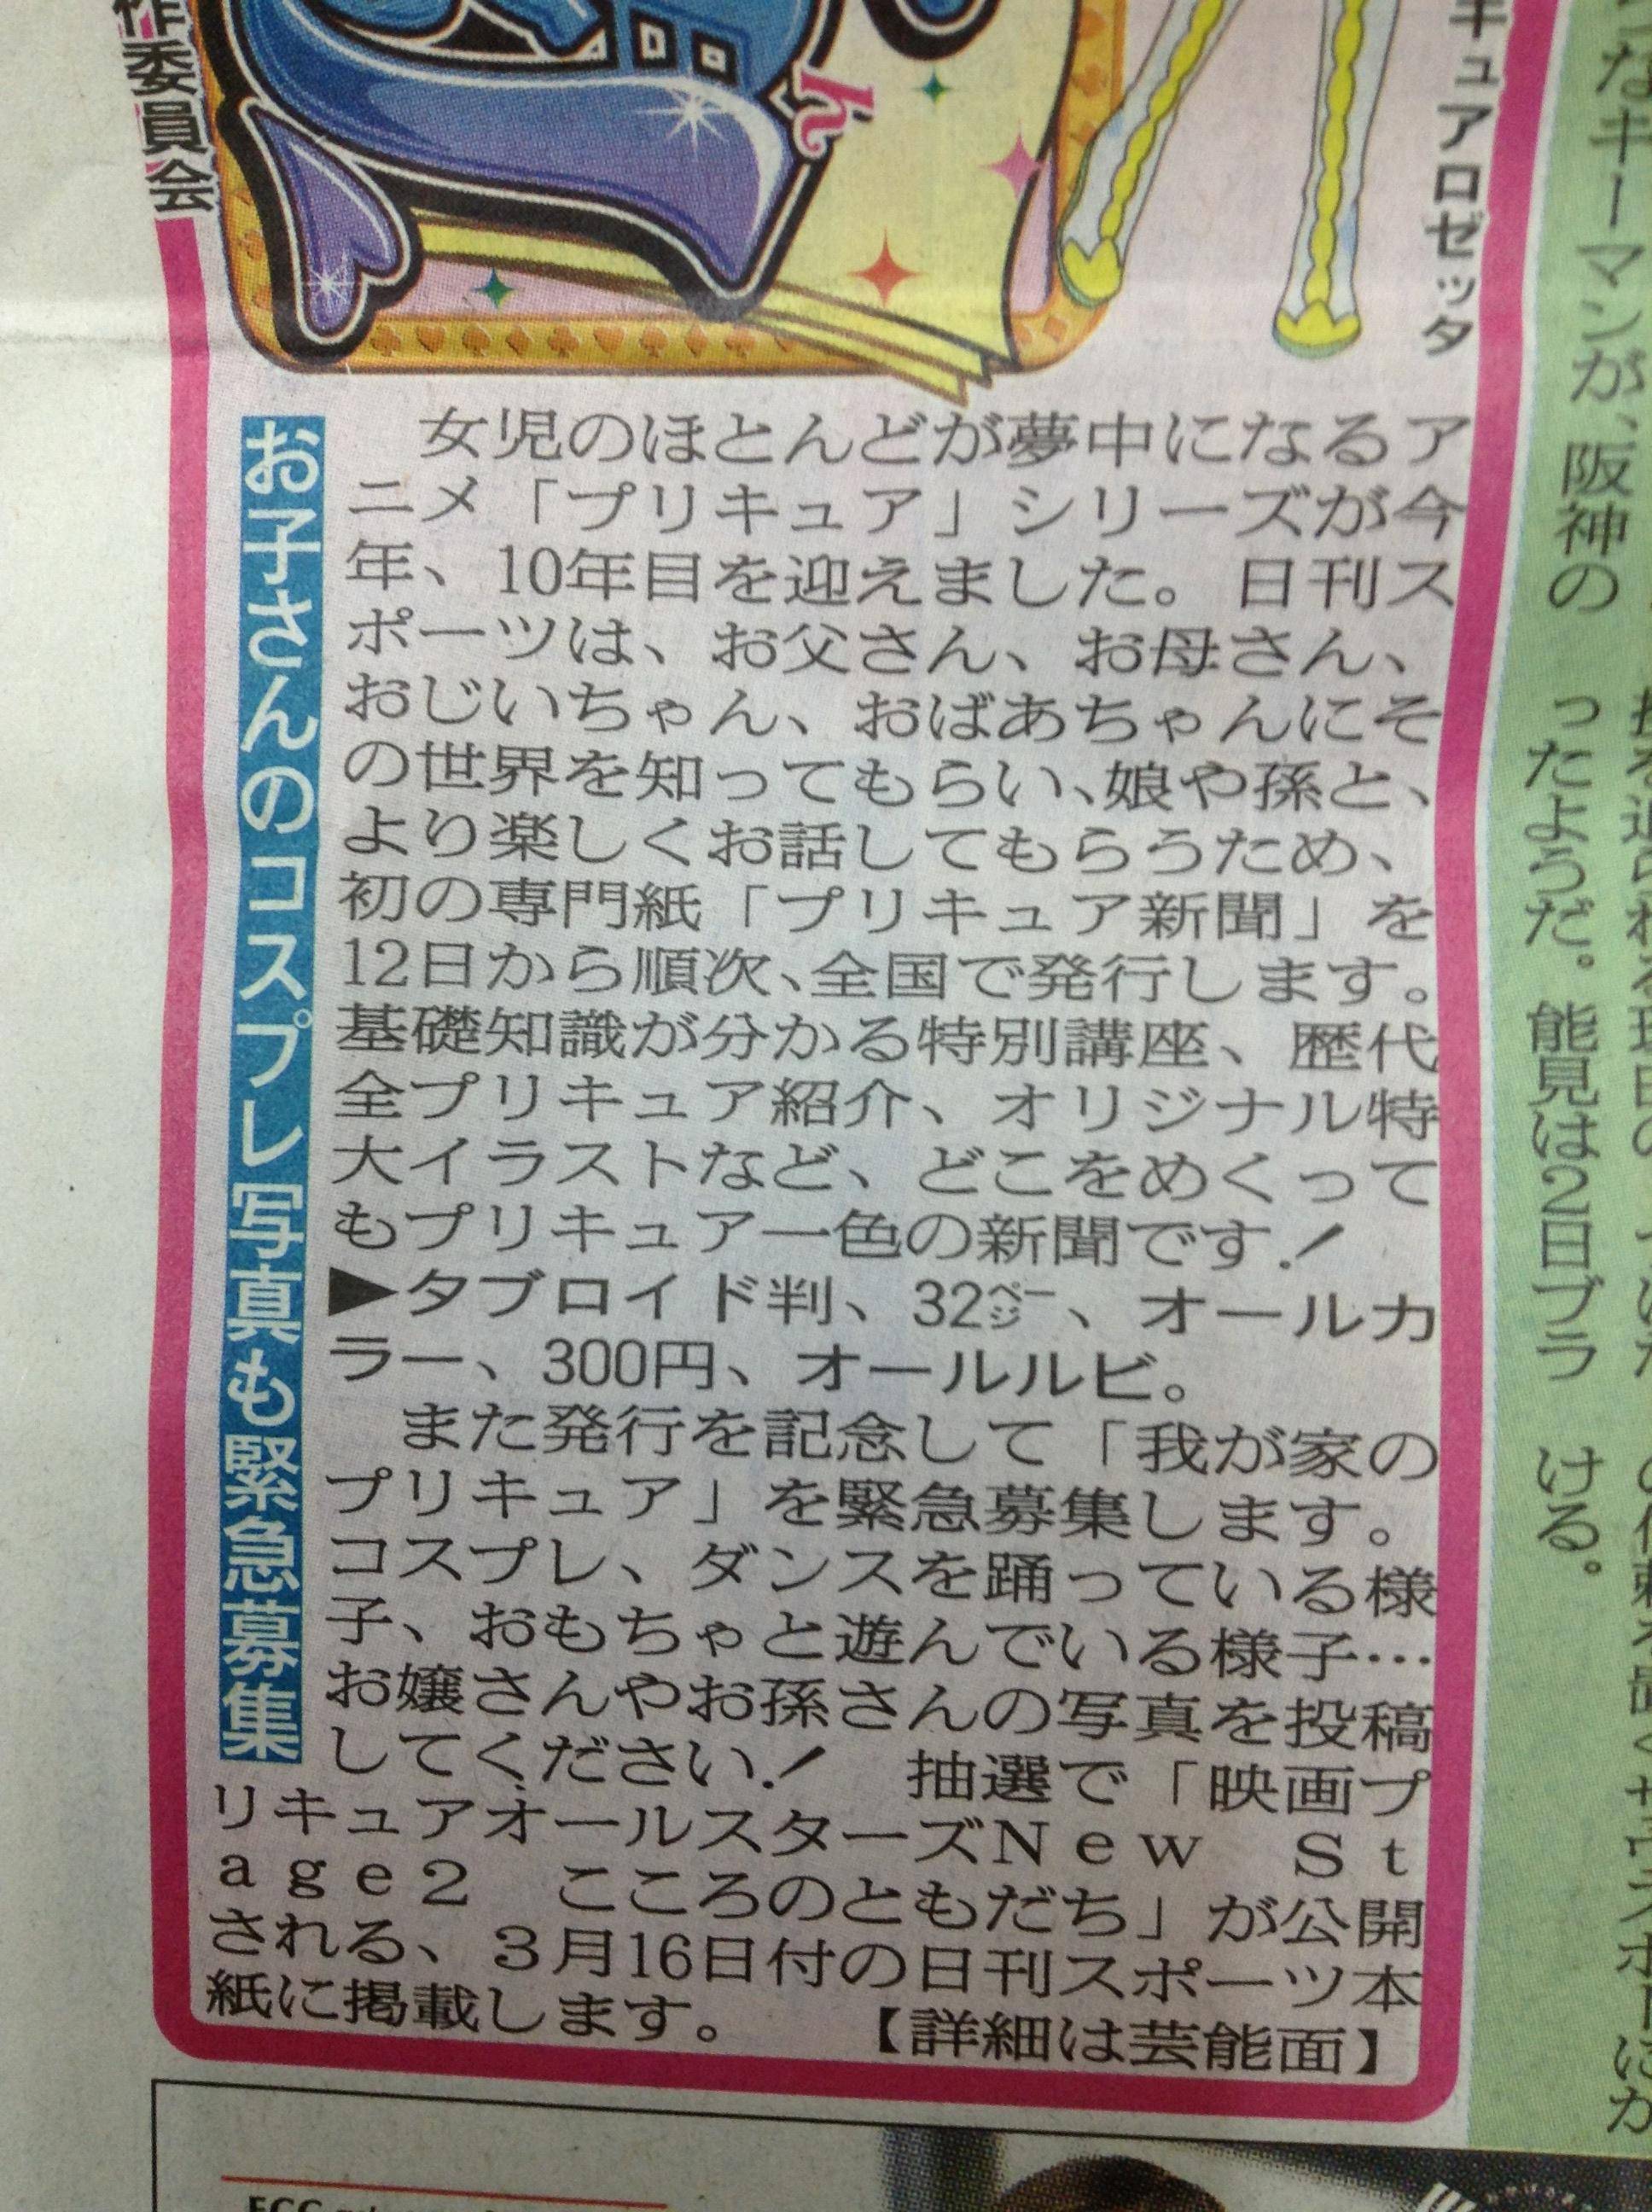 作委員会
ん
キュアロゼッタ
お子さんのコスプレ写真も緊急募集
女児のほとんどが夢中になるア
ニメ「プリキュア」シリーズが今
年、10年目を迎えました。日刊ス
ポーツは、お父さん、お母さん、
おじいちゃん、おばあちゃんにそ
の世界を知ってもらい、娘や孫と、
より楽しくお話してもらうため、
初の専門紙「プリキュア新聞」を
12日から順次、全国で発行します。
基礎知識が分かる特別講座、歴代
全プリキュア紹介、オリジナル特
大イラストなど、どこをめくって
もプリキュア一色の新聞です!
▶タブロイド判、32ページ、オールカ
ラー、300円、オールルビ。
また発行を記念して「我が家の
プリキュア」を緊急募集します。
コスプレ、ダンスを踊っている様
子、おもちゃと遊んでいる様子…
お嬢さんやお孫さんの写真を投稿
してください!　抽選で「映画プ
リキュアオールスターズNew St
age2　こころのともだち」が公開
される、3月16日付の日刊スポーツ本
紙に掲載します。　【詳細は芸能面】
なキーマンが、阪神の
ったようだ。能見は2日ブラ
ける。